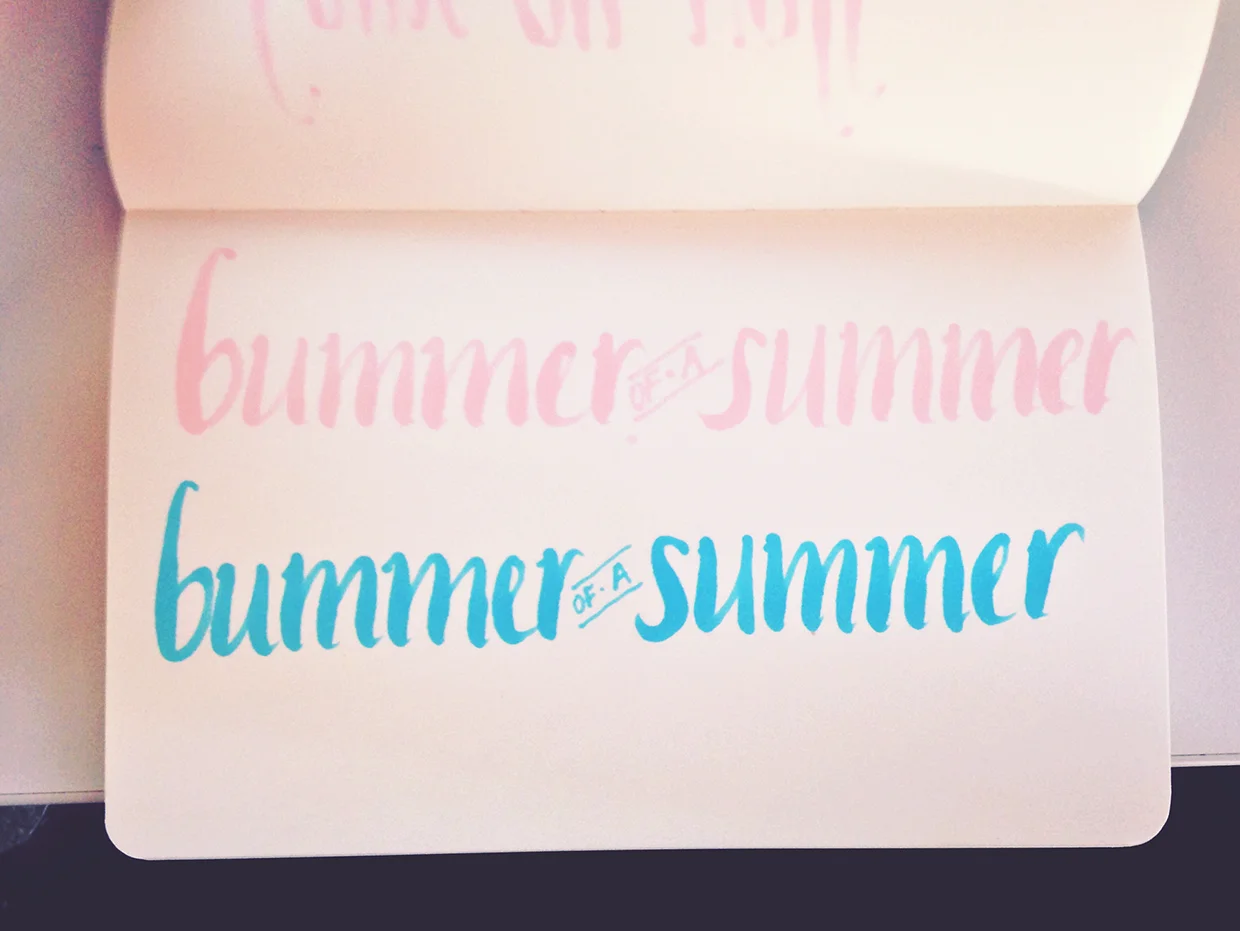 bummer OF·A summer
bummer OF·A summer